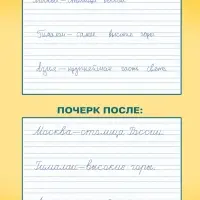 Москва – столица России.
Гималаи – самые высокие горы
Азия – крупнейшая часть света
ПОЧЕРК ПОСЛЕ:
Москва – столица России.
Гималаи – высокие горы.